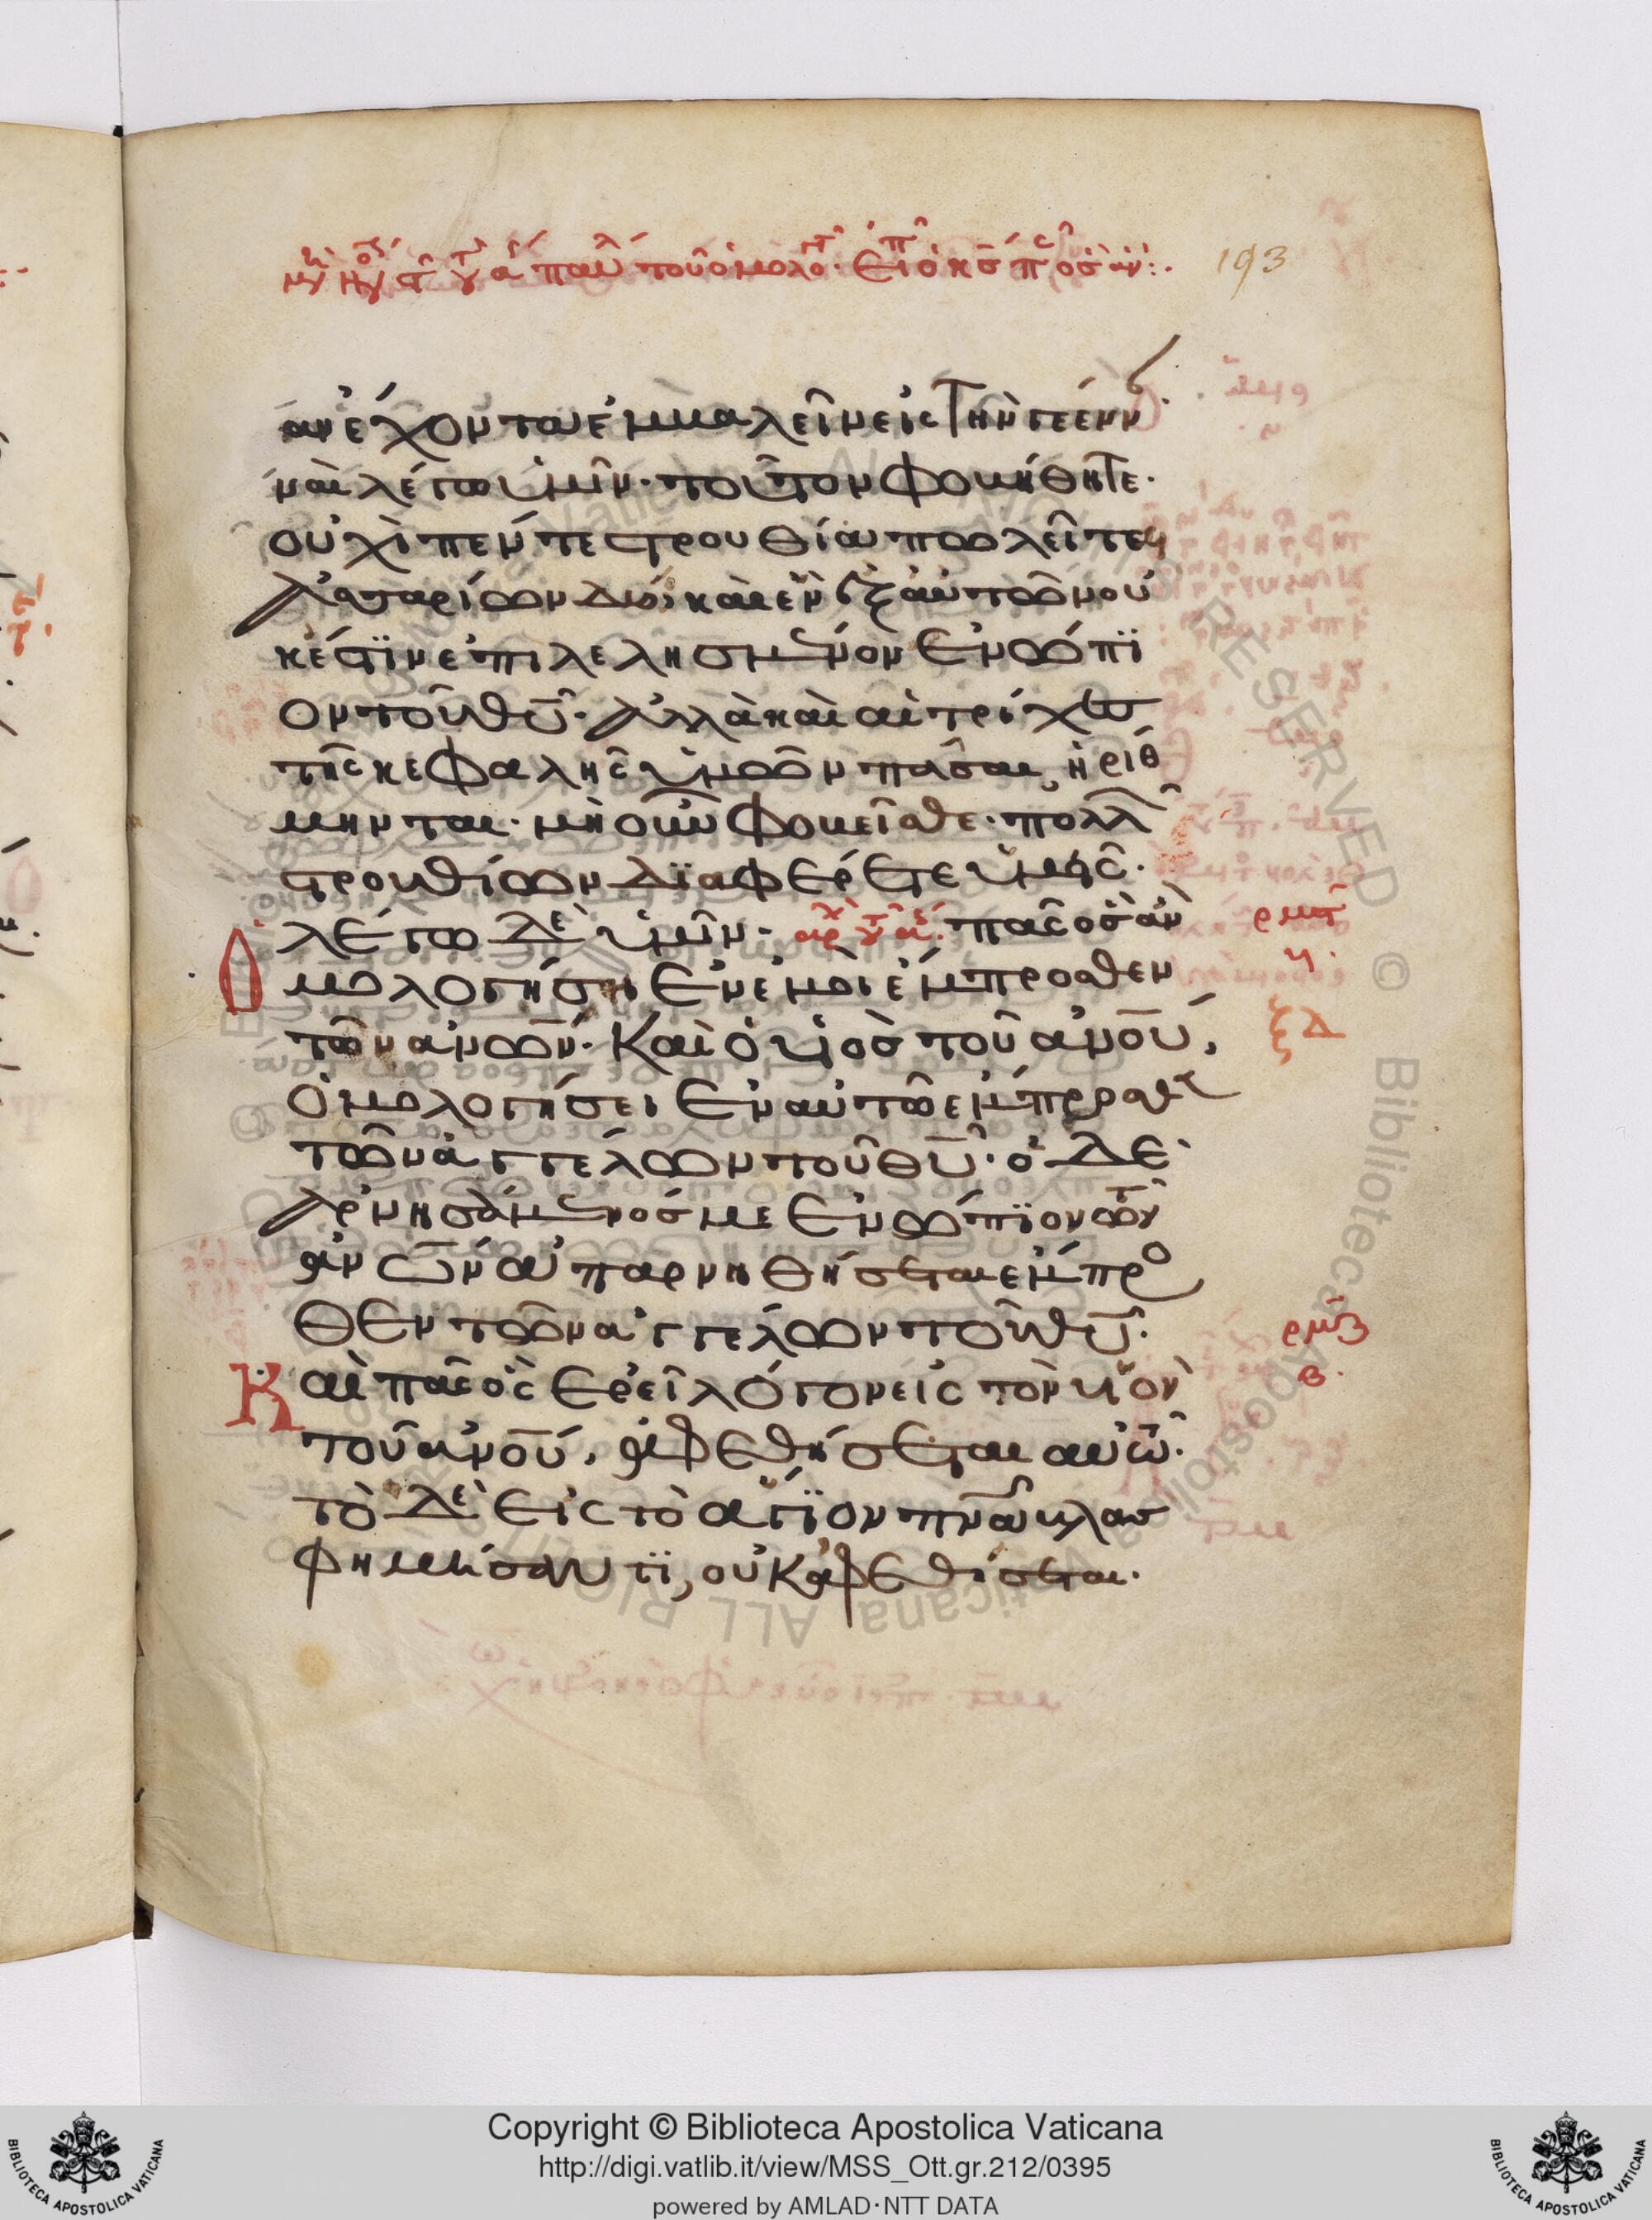 193
ἂν ἔχοντα ἐμβαλεῖν εἰς τὴν γέενν
ναὶ λέγω ὑμῖν· τοῦτον φοβήθητε·
οὐχὶ πέντε στρουθία πωλεῖται
ἀσσαρίων δύο· καὶ ἓν ἐξ αὐτῶν οὐ
κέστιν ἐπιλελησμένον ἐνώπϊ
ον τοῦ θυ̅· ἀλλὰ καὶ αἱ τρίχες
τῆς κεφαλῆς ὑμῶν πᾶσαι, ἠρίθ
μηνται· μὴ οὖν φοβεῖσθε· πολλῶ
στρουθίων διαφέρετε ὑμεῖς·
λέγω δὲ ὑμῖν· πᾶς ὃς ἂν
ὁ μολογήσῃ ἐν ἐμοὶ ἔμπροσθεν
τῶν ανω̅ν· Καὶ ὁ υἱὸς τοῦ ανο̅υ,
ὁμολογήσει ἐν αὐτῶ ἔμπροσθεν
τῶν ἀγγέλων τοῦ θυ̅· ὁ δὲ
ἀρνησάμενός με ἐνώπϊον τῶν
ανω̅ν ἀπαρνηθήσεται ἔμπρο
θεν τῶν ἀγγέλων τοῦ θυ̅·
Καὶ πᾶς ὃς ἐρεῖ λόγον εἰς τὸν υἱὸν
τοῦ ανο̅υ, ἀφεθήσεται αὐτῶ·
τὸ δὲ εἰς τὸ ἅγϊον πνα̅ βλασ
φημήσαντϊ, οὐκ ἀφεθήσεται·
ρμς
η
ξδ
ρμζ
β
Copyright © Biblioteca Apostolica Vaticana
http://digi.vatlib.it/view/MSS_Ott.gr.212/0395
powered by AMLAD·NTT DATA
BIBLIOTECA APOSTOLICA VATICANA
BIBLIOTECA APOSTOLICA VATICANA